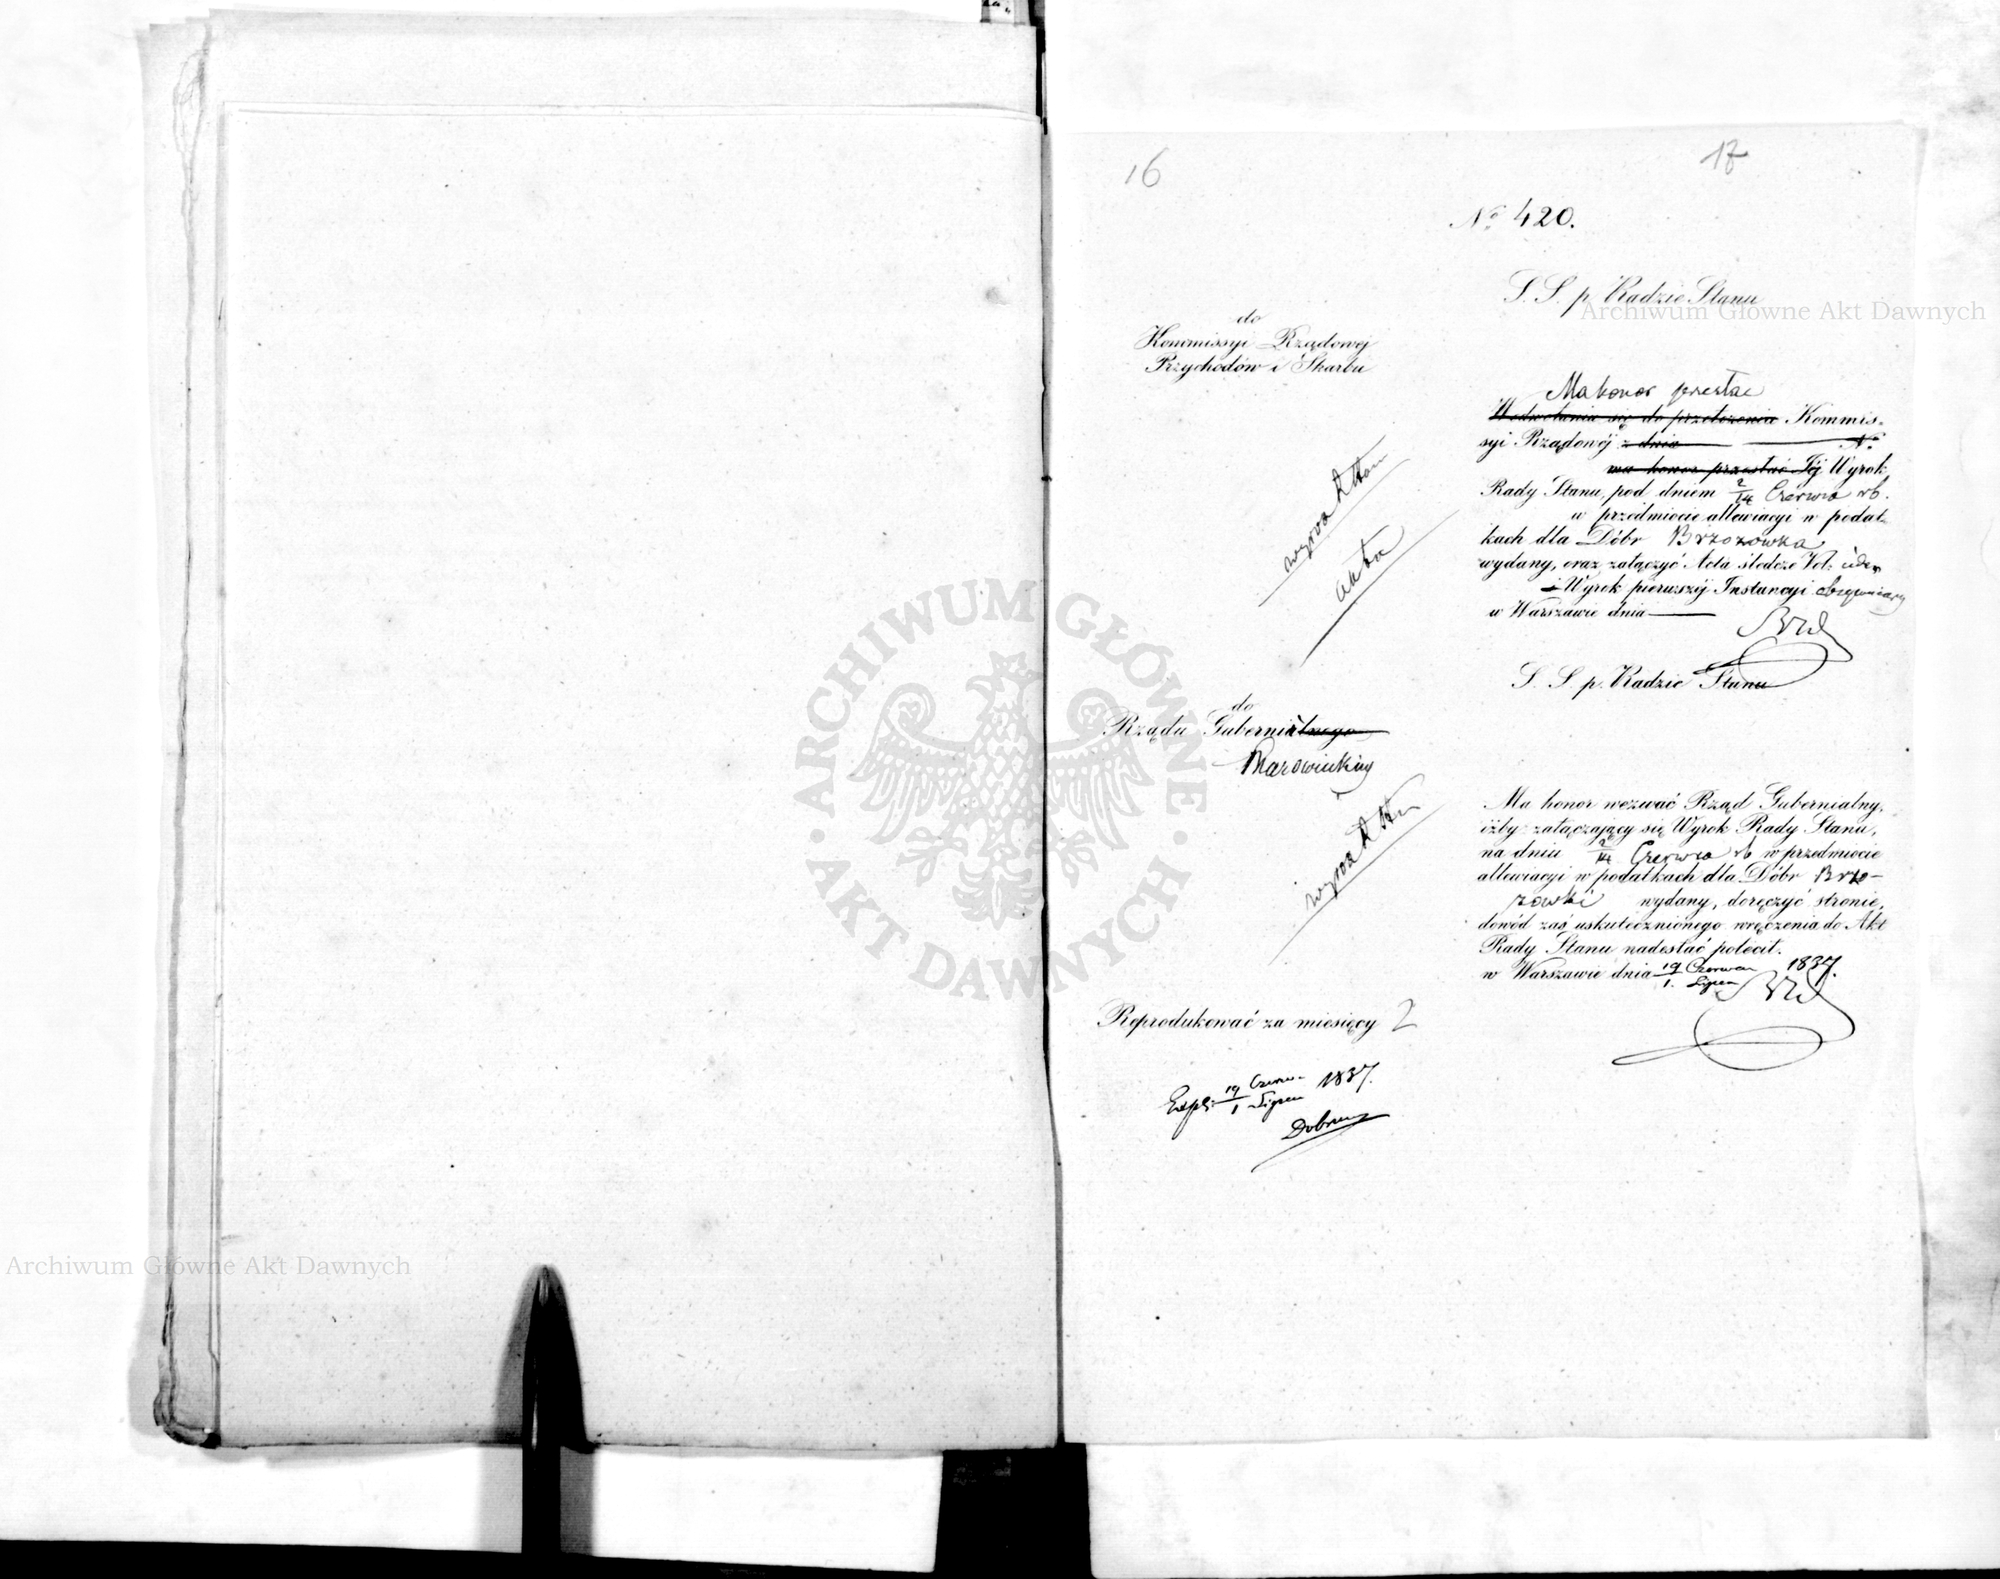 16
17
№ 420.
S. S. p. Radzie Stanu
do
Kommissyi Rządowej
Przychodów i Skarbu
Ma honor przesłać
Kommis-
syi Rządowéj z dnia №
ma honor przesłać Jéj Wyrok
Rady Stanu, pod dniem 2/14 Czerwca rb.
w przedmiocie allewiacyi w podat-
kach dla Dóbr Brzozówka
wydany, oraz załączyć Acta śledcze Vol: jeden
i Wyrok pierwszéj Instancyi
w Warszawie dnia
akta
S. S. p. Radzie Stanu
do
Rządu Gubernialnego
Mazowieckiego
Ma honor wezwać Rząd Gubernialny,
iżby załączający się Wyrok Rady Stanu,
na dniu 2/14 Czerwca rb w przedmiocie
allewiacyi w podatkach dla Dóbr Brzo-
zówki wydany, doręczyć stronie,
dowód zaś uskutecznionego wręczenia do Akt
Rady Stanu nadesłać polecił.
w Warszawie dnia 19 Czerwca / 1. Lipca 1837.
Reprodukować za miesięcy 2
Exp: 19 Czerw. / 1 Lipca 1837.
Archiwum Główne Akt Dawnych
Archiwum Główne Akt Dawnych
ARCHIWUM GŁÓWNE
AKT DAWNYCH